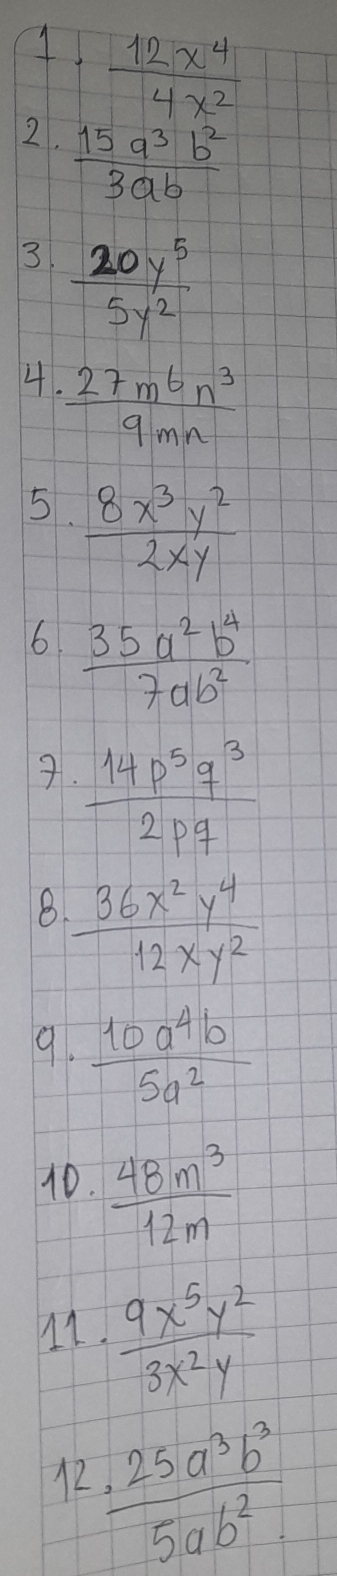 1. 12x⁴
4x²
2. 15a³ b²
3ab
3. 20y⁵
5y²
4. 27m⁶n³
9mn
5. 8x³y²
2xy
6. 35a²b⁴
7ab²
7. 14p⁵q³
2pq
8. 36x²y⁴
12xy²
9. 10a⁴b
5a²
10. 48m³
12m
11. 9x⁵y²
3x²y
12. 25a³b³
5ab².